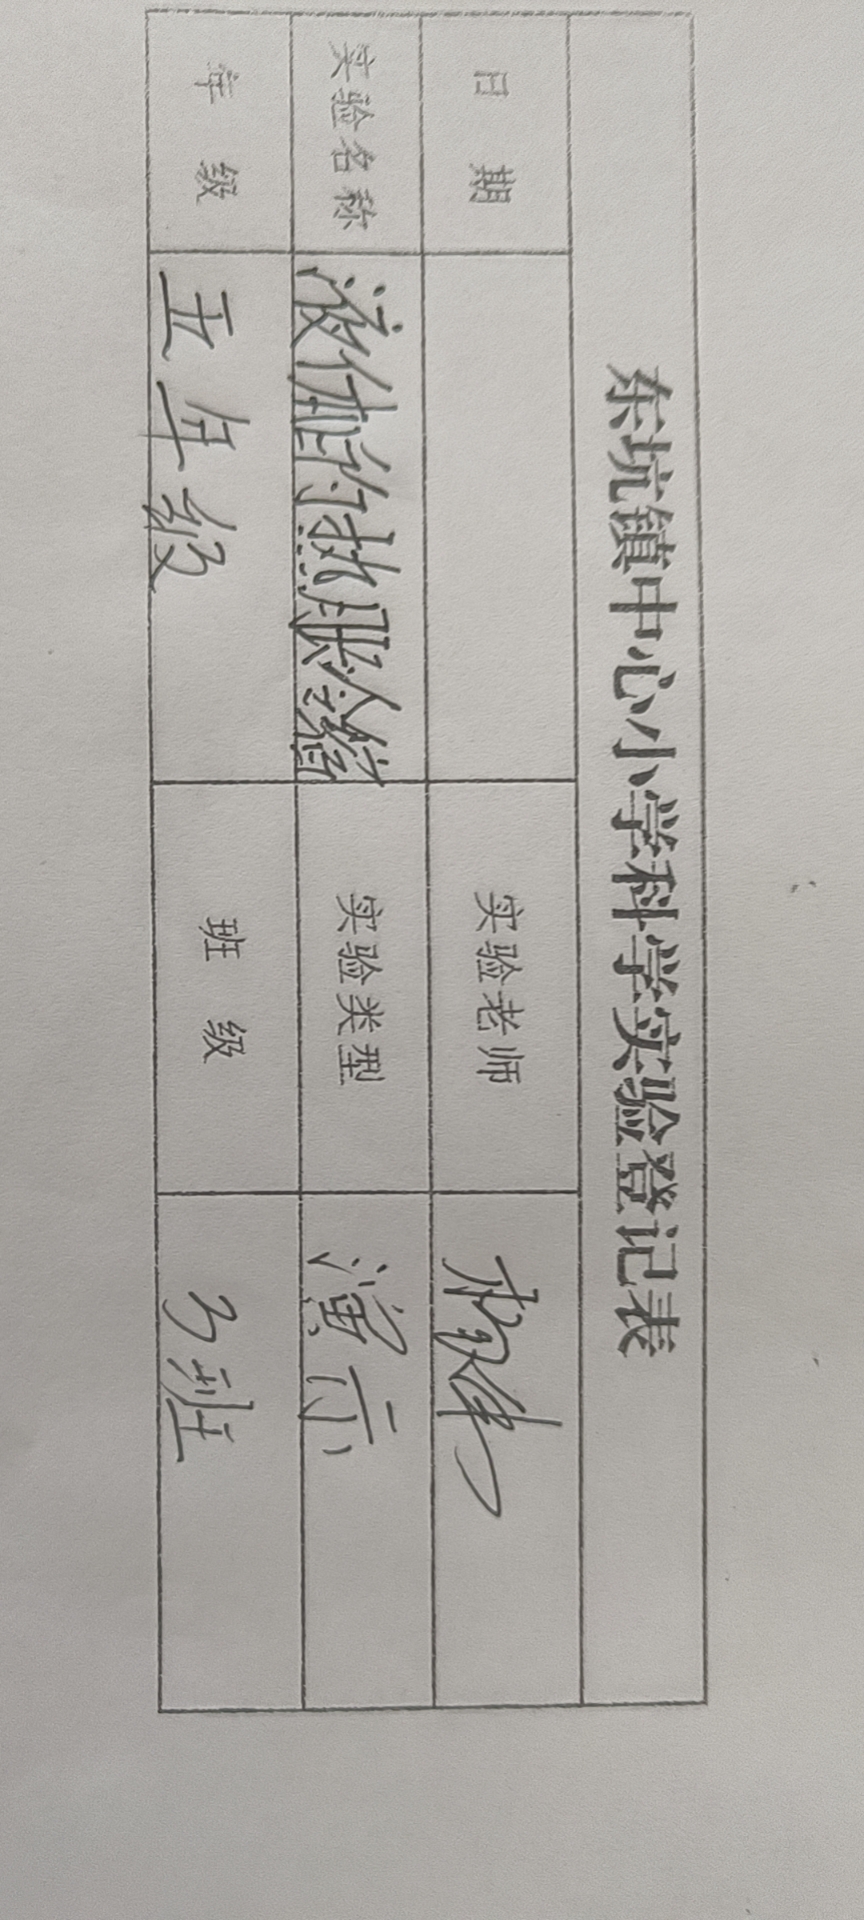 东坑镇中心小学科学实验登记表
日 期 实验老师
实验名称 液体的热胀冷缩 实验类型 演示
年 级 五年级 班 级 3班